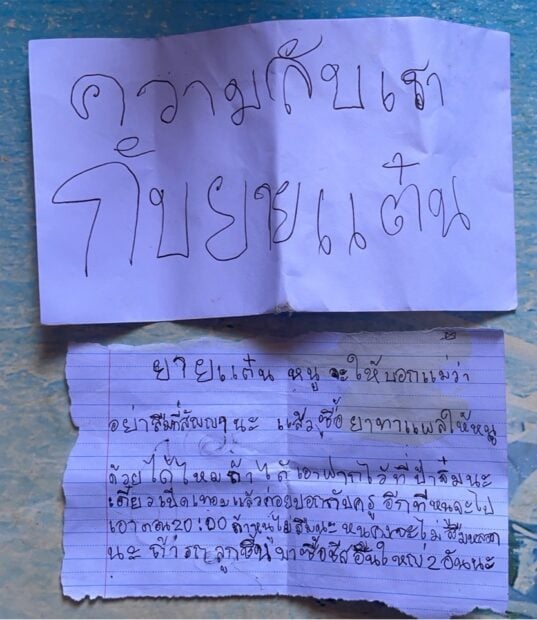 ความลับเรา
กับยายแต๋น
ยายแต๋น หนูจะให้บอกแม่ว่า
อย่าลืมที่สัญญานะ แล้วซื้อยาทาแผลให้หนู
ด้วยได้ไหมถ้าได้เอาฝากไว้ที่ป้าส้มนะ
เดี๋ยวเช็ดเทอมแล้วค่อยบอกกับครู อีกทีหนูจะไป
เอาตอน 20:00 ถ้าหนูไม่ลืมนะ หนูคงจะไม่ลืมหรอก
นะ ถ้ารถลูกชิ้นมาซื้อชีสอันใหญ่ 2 อันนะ